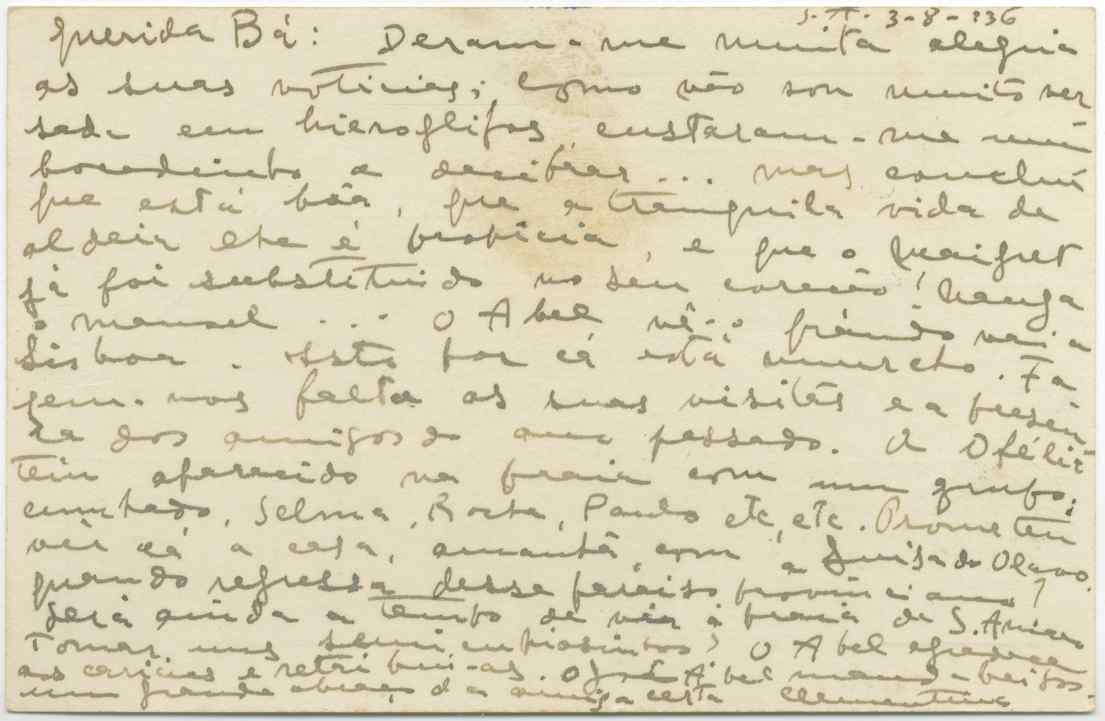 S.A. 3-8-936
Querida Bá: Deram-me muita alegria
as suas noticias; Como não sou muito ver
sada em hieroglifos, custaram-me um
bocadinho a decifrar... mas concluí
que está bôa, que a tranquila vida de
aldeia lhe é propicia, e que o Maigret
já foi substituido no seu coração!
o manuel... O Abel vê-o quando vai a
Lisboa. Isto por cá está murcho. Fa
zem-nos falta as suas visitas e a presen
ça dos amigos do ano passado. A Ofélia
tem aparecido na praia com um grupo:
cunhado, Selma, Rocha, Paulo etc, etc. Prometeu
vir cá a casa, amanhã com a Luisa do Olavo.
quando regressa desse paraiso provinciano?
Será ainda a tempo de vir á praia de S. Amaro
Tomar uns? O Abel agradece
as caricias e retribui-as. O José Abel manda beijos.
um grande abraço da amiga certa Clementina